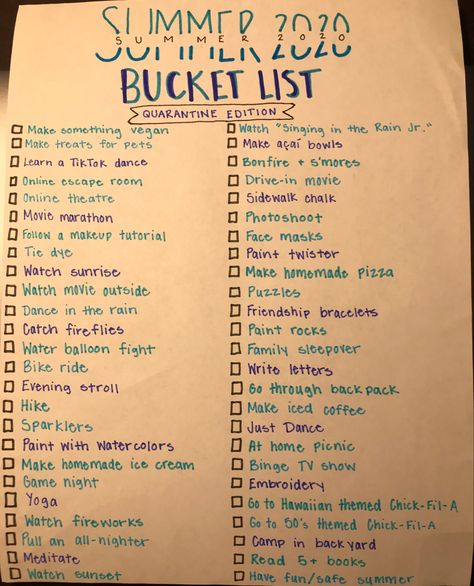 SUMMER 2020
SUMMER 2020
SUMMER 2020
BUCKET LIST
QUARANTINE EDITION
Make something vegan
Make treats for pets
Learn a TikTok dance
Online escape room
Online theatre
Movie marathon
Follow a makeup tutorial
Tie dye
Watch sunrise
Watch movie outside
Dance in the rain
Catch fireflies
Water balloon fight
Bike ride
Evening stroll
Hike
Sparklers
Paint with watercolors
Make homemade ice cream
Game night
Yoga
Watch fireworks
Pull an all-nighter
Meditate
Watch sunset
Watch "Singing in the Rain Jr."
Make açaí bowls
Bonfire + s'mores
Drive-in movie
Sidewalk chalk
Photoshoot
Face masks
Paint twister
Make homemade pizza
Puzzles
Friendship bracelets
Paint rocks
Family sleepover
Write letters
Go through backpack
Make iced coffee
Just Dance
At home picnic
Binge TV show
Embroidery
Go to Hawaiian themed Chick-Fil-A
Go to 50's themed Chick-Fil-A
Camp in backyard
Read 5+ books
Have fun/safe summer